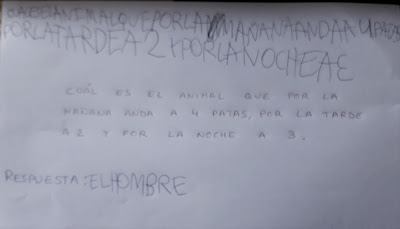 CUALESELANIMALQUEPORLAMAÑANAANDAA4PATAS
PORLATARDEA2YPORLANOCHEA3
CUÁL ES EL ANIMAL QUE POR LA
MAÑANA ANDA A 4 PATAS, POR LA TARDE
A 2 Y POR LA NOCHE A 3.
RESPUESTA: ELHOMBRE